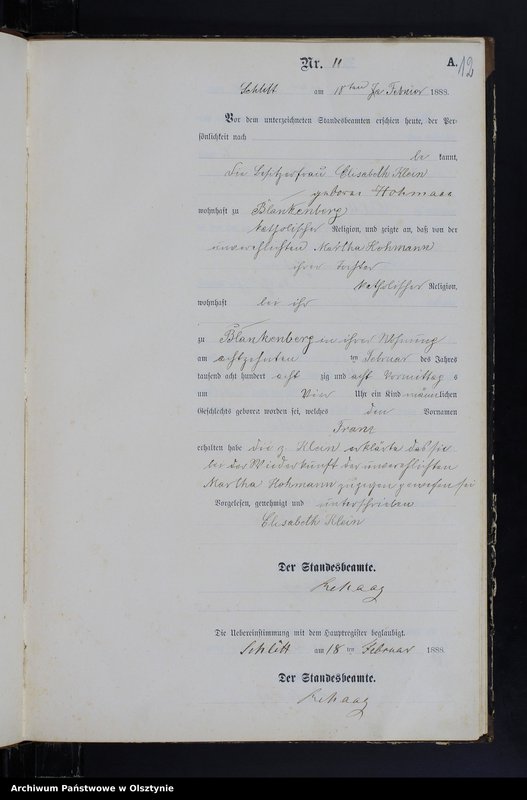 Nr. 11
A.
12
Schlitt am 18ten Februar 1888.
Vor dem unterzeichneten Standesbeamten erschien heute, der Per-
sönlichkeit nach
be kannt,
die Besitzerfrau Elisabeth Klein
geborne Hohmann
wohnhaft zu Blankenberg
katholischer Religion, und zeigte an, daß von der
unverehlichten Martha Hohmann
ihrer Tochter
katholischer Religion,
wohnhaft bei ihr
zu Blankenberg in ihrer Wohnung
am achtzehnten ten Februar des Jahres
tausend acht hundert acht zig und acht Vormittag s
um Vier Uhr ein Kind männlichen
Geschlechts geboren worden sei, welches den Vornamen
Franz
erhalten habe die p. Klein erklärte das sie
bei der Niederkunft der unverehlichten
Martha Hohmann zugegen gewesen sei
Vorgelesen, genehmigt und unterschrieben
Elisabeth Klein
Der Standesbeamte.
Die Uebereinstimmung mit dem Hauptregister beglaubigt.
Schlitt am 18 ten Februar 1888.
Der Standesbeamte.
Archiwum Państwowe w Olsztynie